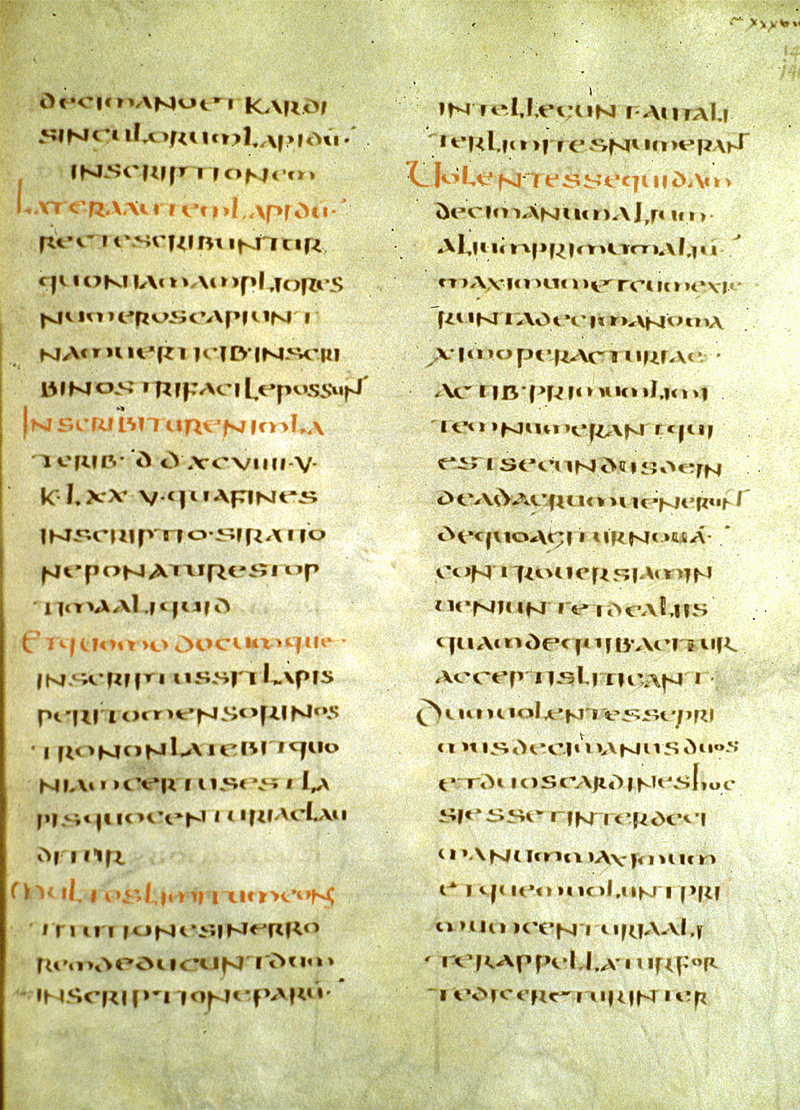 decimanoet kardi
singulorum lapidū·
inscriptionem
Latera autem lapidū·
recte scribuntur
quoniam ampliores
numeros capiunt
nam uerticib· inscri
bi nos trifacile possunt
Inscribitur enim la
terib· d d xcviiii·v·
k·l xx v·qua fines
inscriptio·si ratio
ne ponatur est op
tima aliquid
Et quomodocumque·
inscriptus sit lapis
perito mensori nos
tro non latebit quo
niam certus est la
pis quo centuria clau
ditur
Multos limitum cons
titutiones in erro
rem deducunt dum
inscriptione parū·
intellegunt· aut ali
ter limites numerant
Uolentes sequidam
decimanum alium·
alium primum aliū·
maximum et cum exie
runt a decimano ma
ximo peractu riae·
actib· primum limi
tem numerant qui
est secundus dein
de ad acrum uenerunt
de quo agitur nouā·
controuersiam in
ueniunt et de aliis
quam de quib· agitur
acceptis litigant·
Dum uolent esse pri
mus decimanus duos
et duos cardines hoc
si esset inter deci
manum maximum
et quem uolunt pri
mum centuria ali
ter appellatur for
te diceretur inter